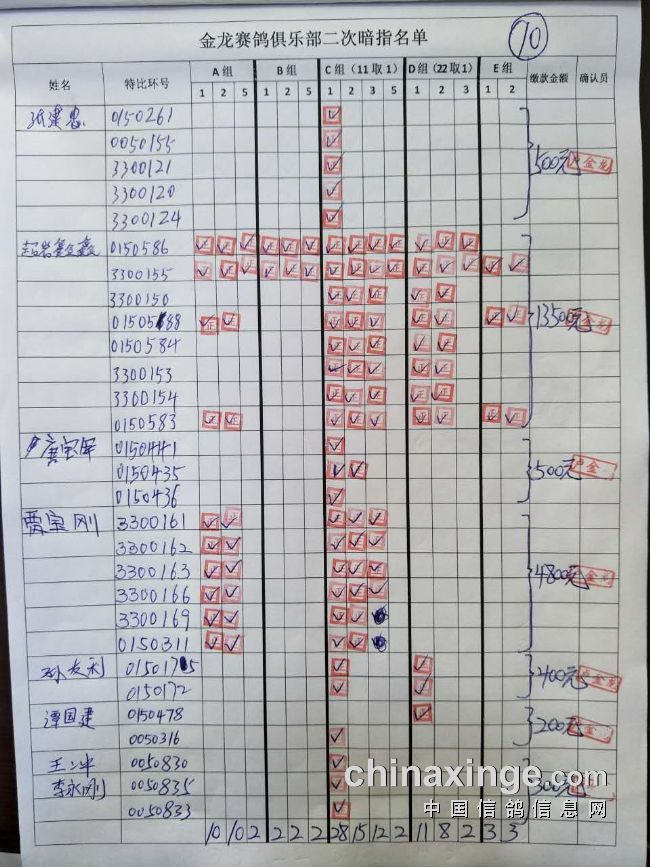 金龙赛鸽俱乐部二次暗指名单
70
姓名 特比环号 A组 B组 C组(11取1) D组(22取1) E组 缴款金额 确认员
1 2 5 1 2 5 1 2 3 5 1 2 3 1 2
张建忠 0150261
0050155
3300121
3300120
3300124
500元
0150586
3300155
3300150
0150588
0150584
3300153
3300154
0150583
13500元
唐宝军 0150441
0150435
0150436
500元
贾宝刚 3300161
3300162
3300163
3300166
3300169
0150311
4800元
孙友利 0150175
0150172
400元
谭国建 0150478
0050316
200元
王二平 0050830
李永刚 0050835
0050833
300元
10 10 2 2 2 2 28 15 12 2 11 8 2 3 3
chinaxinge.com
中国信鸽信息网